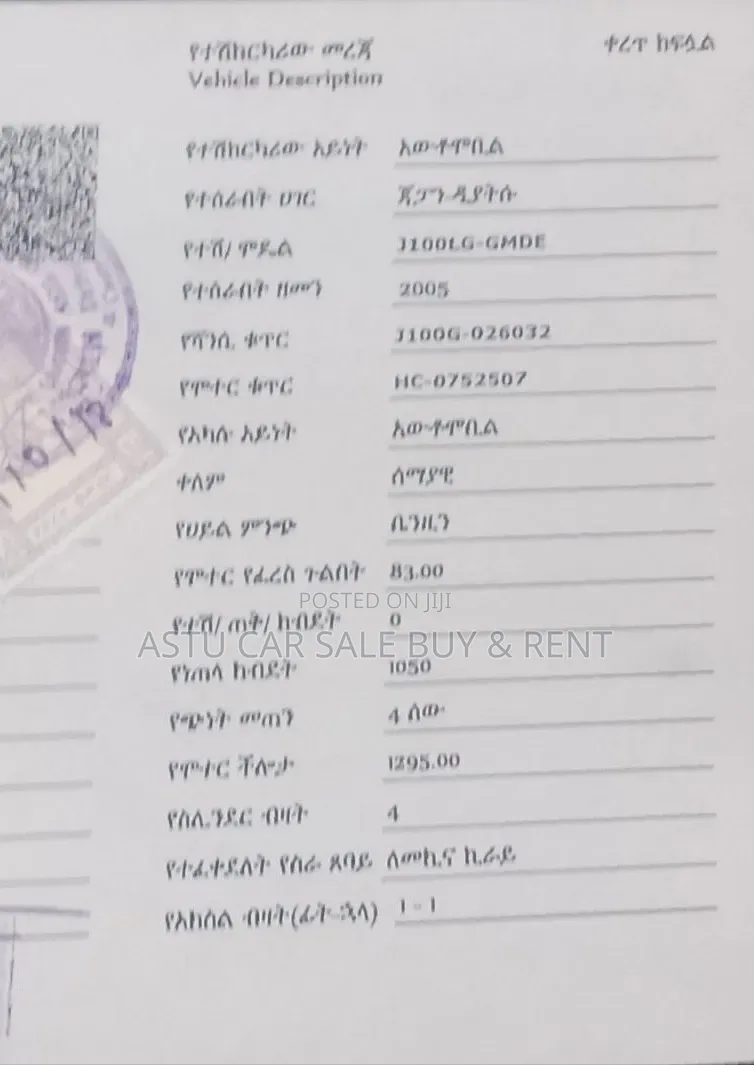 የተሽከርካሪው መረጃ
Vehicle Description
ቀረጥ ከፍሏል
የተሽከርካሪው አይነት አውቶሞቢል
የተሰራበት ሀገር ጃፓን ዳያትሱ
የተሽ/ ሞዴል J100LG-GMDE
የተሰራበት ዘመን 2005
የሻንሲ ቁጥር J100G-026032
የሞተር ቁጥር HC-0752507
የአካሉ አይነት አውቶሞቢል
ቀለም ሰማያዊ
የሀይል ምንጭ ቤንዚን
የሞተር የፈረስ ጉልበት 83.00
POSTED ON JIJI
የተሽ/ ጠቅ/ ክብደት 0
ASTU CAR SALE BUY & RENT
የነጠላ ክብደት 1050
የጭነት መጠን 4 ሰው
የሞተር ችሎታ 1295.00
የሲሊንደር ብዛት 4
የተፈቀደለት የስራ ጸባይ ለመኪና ኪራይ
የአክሰል ብዛት(ፊት-ኋላ) 1 - 1